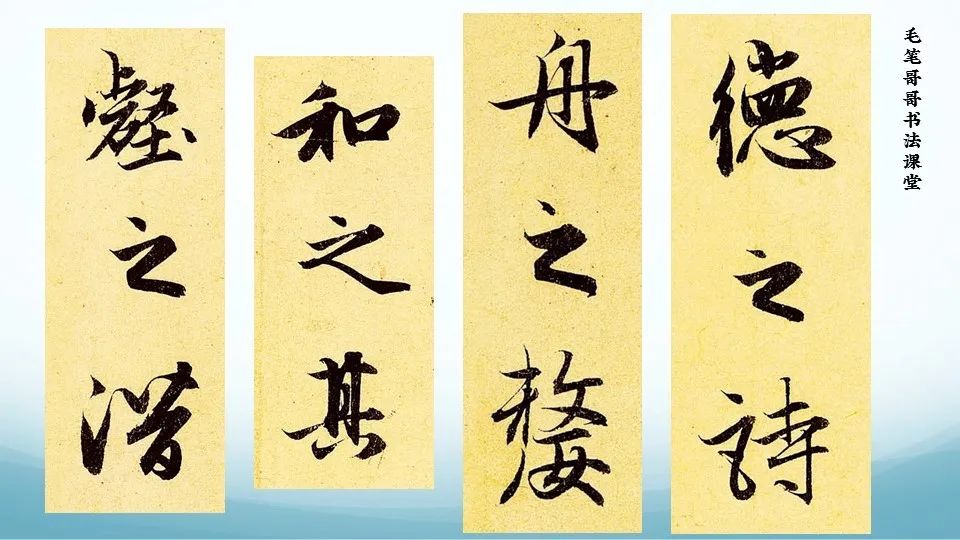 毛笔哥哥书法课堂
德之诗
舟之嫠
和之其
壑之潜